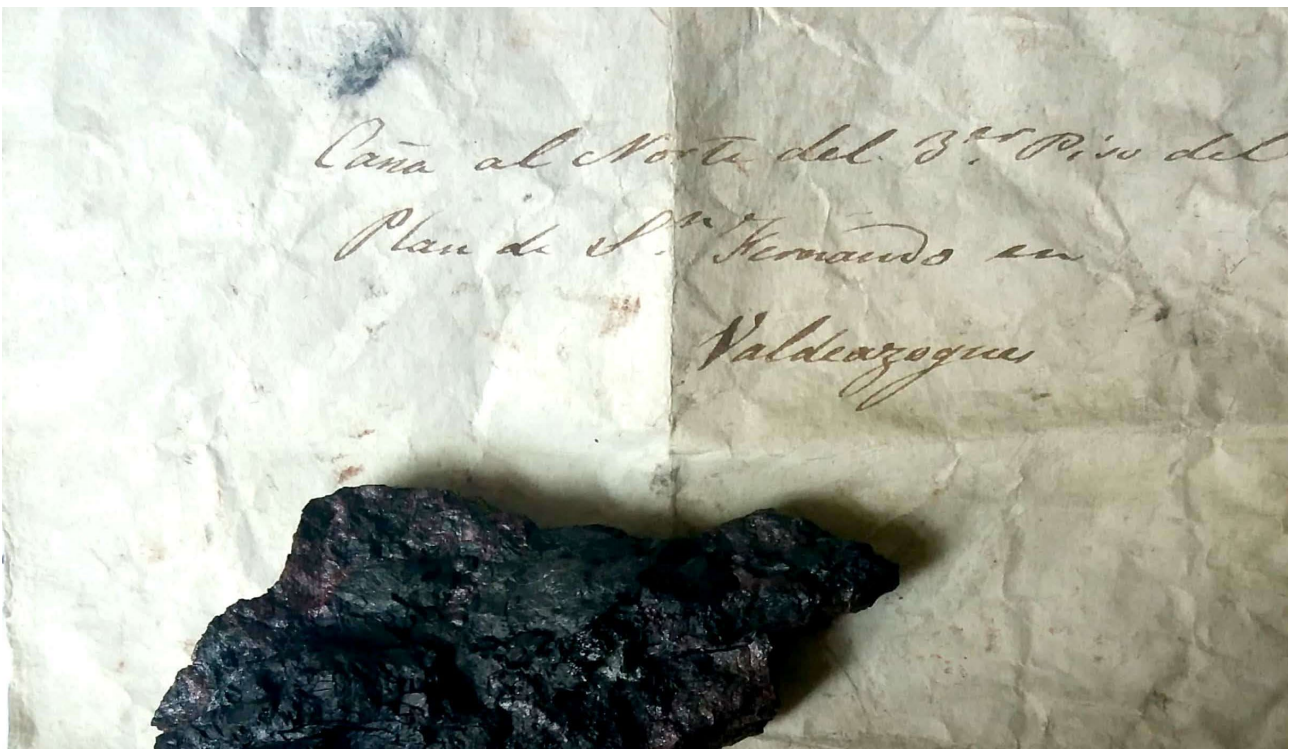 Caña al Norte del 3.er Piso del
Plan de S.n Fernando en
Valdeazogues